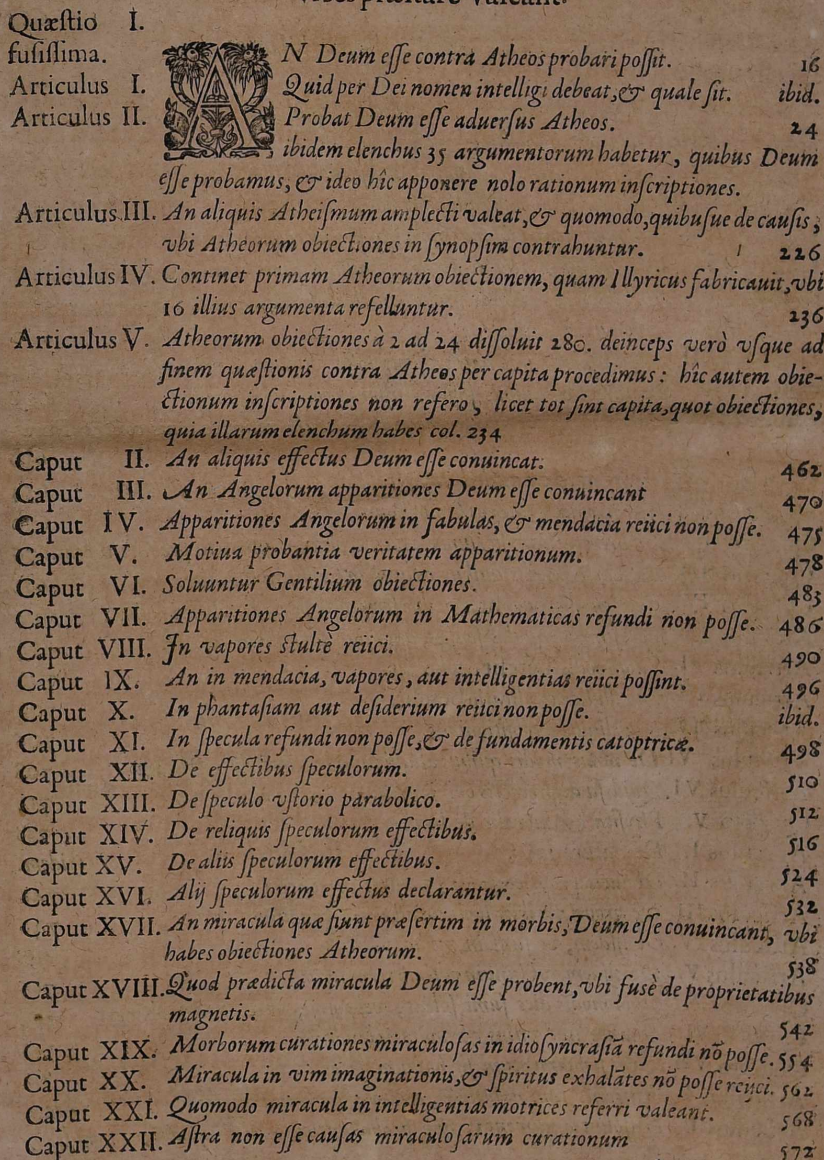 Quæſtio I.
fuſiſſima. AN Deum eſſe contra Atheos probari poſſit. 16
Articulus I. Quid per Dei nomen intelligi debeat, & quale ſit. ibid.
Articulus II. Probat Deum eſſe aduerſus Atheos. 24
ibidem elenchus 35 argumentorum habetur, quibus Deum
eſſe probamus, & ideo hîc apponere nolo rationum inſcriptiones.
Articulus III. An aliquis Atheiſmum amplecti valeat, & quomodo, quibuſue de cauſis;
vbi Atheorum obiectiones in ſynopſim contrahuntur. 226
Articulus IV. Continet primam Atheorum obiectionem, quam Illyricus fabricauit, vbi
16 illius argumenta refelluntur. 236
Articulus V. Atheorum obiectiones à 2 ad 24 diſſoluit 280. deinceps verò vſque ad
finem quæſtionis contra Atheos per capita procedimus: hîc autem obie-
ctionum inſcriptiones non refero, licet tot ſint capita, quot obiectiones,
quia illarum elenchum habes col. 234
Caput II. An aliquis effectus Deum eſſe conuincat. 462
Caput III. An Angelorum apparitiones Deum eſſe conuincant 470
Caput IV. Apparitiones Angelorum in fabulas, & mendacia reiici non poſſe. 475
Caput V. Motiua probantia veritatem apparitionum. 478
Caput VI. Soluuntur Gentilium obiectiones. 483
Caput VII. Apparitiones Angelorum in Mathematicas refundi non poſſe. 486
Caput VIII. In vapores ſtultè reiici. 490
Caput IX. An in mendacia, vapores, aut intelligentias reiici poſſint. 496
Caput X. In phantaſiam aut deſiderium reiici non poſſe. ibid.
Caput XI. In ſpecula refundi non poſſe, & de fundamentis catoptricæ. 498
Caput XII. De effectibus ſpeculorum. 510
Caput XIII. De ſpeculo vſtorio parabolico. 512
Caput XIV. De reliquis ſpeculorum effectibus. 516
Caput XV. De aliis ſpeculorum effectibus. 524
Caput XVI. Alij ſpeculorum effectus declarantur. 532
Caput XVII. An miracula quæ fiunt præſertim in morbis, Deum eſſe conuincant, vbi
habes obiectiones Atheorum. 538
Caput XVIII. Quod prædicta miracula Deum eſſe probent, vbi fusè de proprietatibus
magnetis. 542
Caput XIX. Morborum curationes miraculoſas in idioſyncraſiā refundi nō poſſe. 554
Caput XX. Miracula in vim imaginationis, & ſpiritus exhalātes nō poſſe reiici. 562
Caput XXI. Quomodo miracula in intelligentias motrices referri valeant. 568
Caput XXII. Aſtra non eſſe cauſas miraculoſarum curationum 572